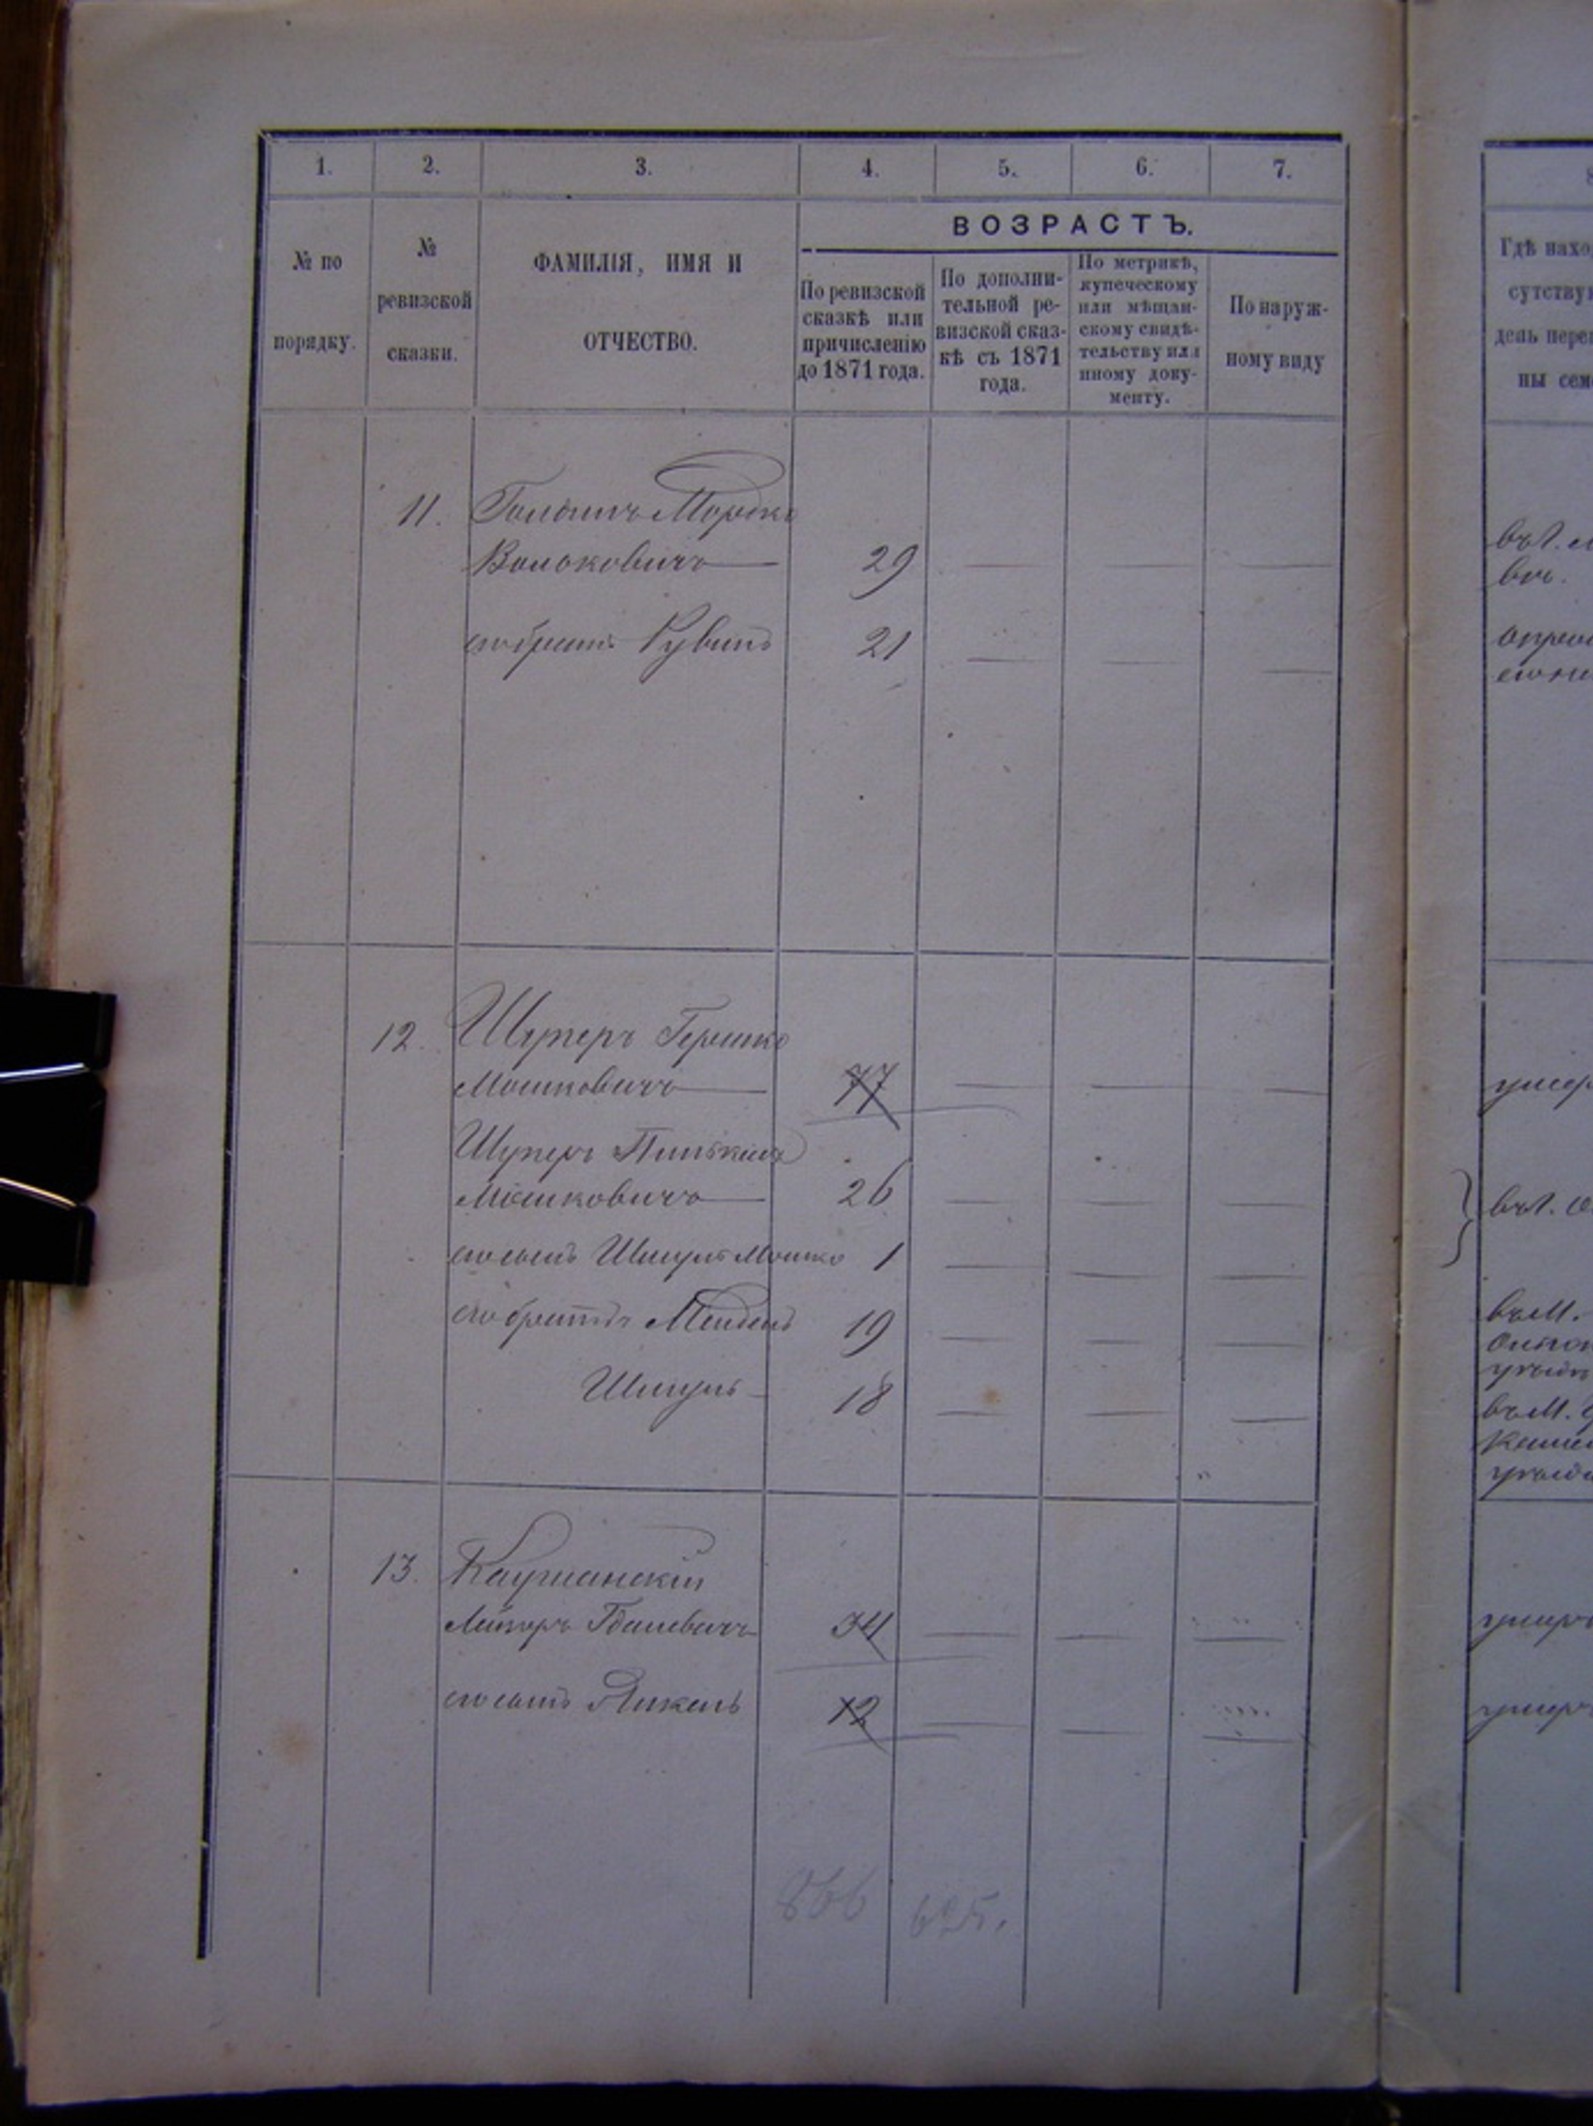 1. 2. 3. 4. 5. 6. 7.
№ по порядку.
№ ревизской сказки.
ФАМИЛІЯ, ИМЯ И ОТЧЕСТВО.
ВОЗРАСТЪ.
По ревизской сказкѣ или причисленію до 1871 года.
По дополнительной ревизской сказкѣ съ 1871 года.
По метрикѣ, купеческому или мѣщанскому свидѣтельству или иному документу.
По наружному виду
Гдѣ
11. Мордко
Вольковичъ — 29 — — —
его братъ Рувинъ 21 — — —
12. Шуперъ Гершко
Мошковичъ — 77 — — —
Шуперъ Пинькасъ
Мошковичъ — 26 — — —
его сынъ Шмуль Мошко 1 — — —
его братья Мендель 19 — — —
Шмуль — 18 — — —
13. Каушанскій
Лейзеръ 34 — — —
его сынъ Янкель 12 — — —
866 625.